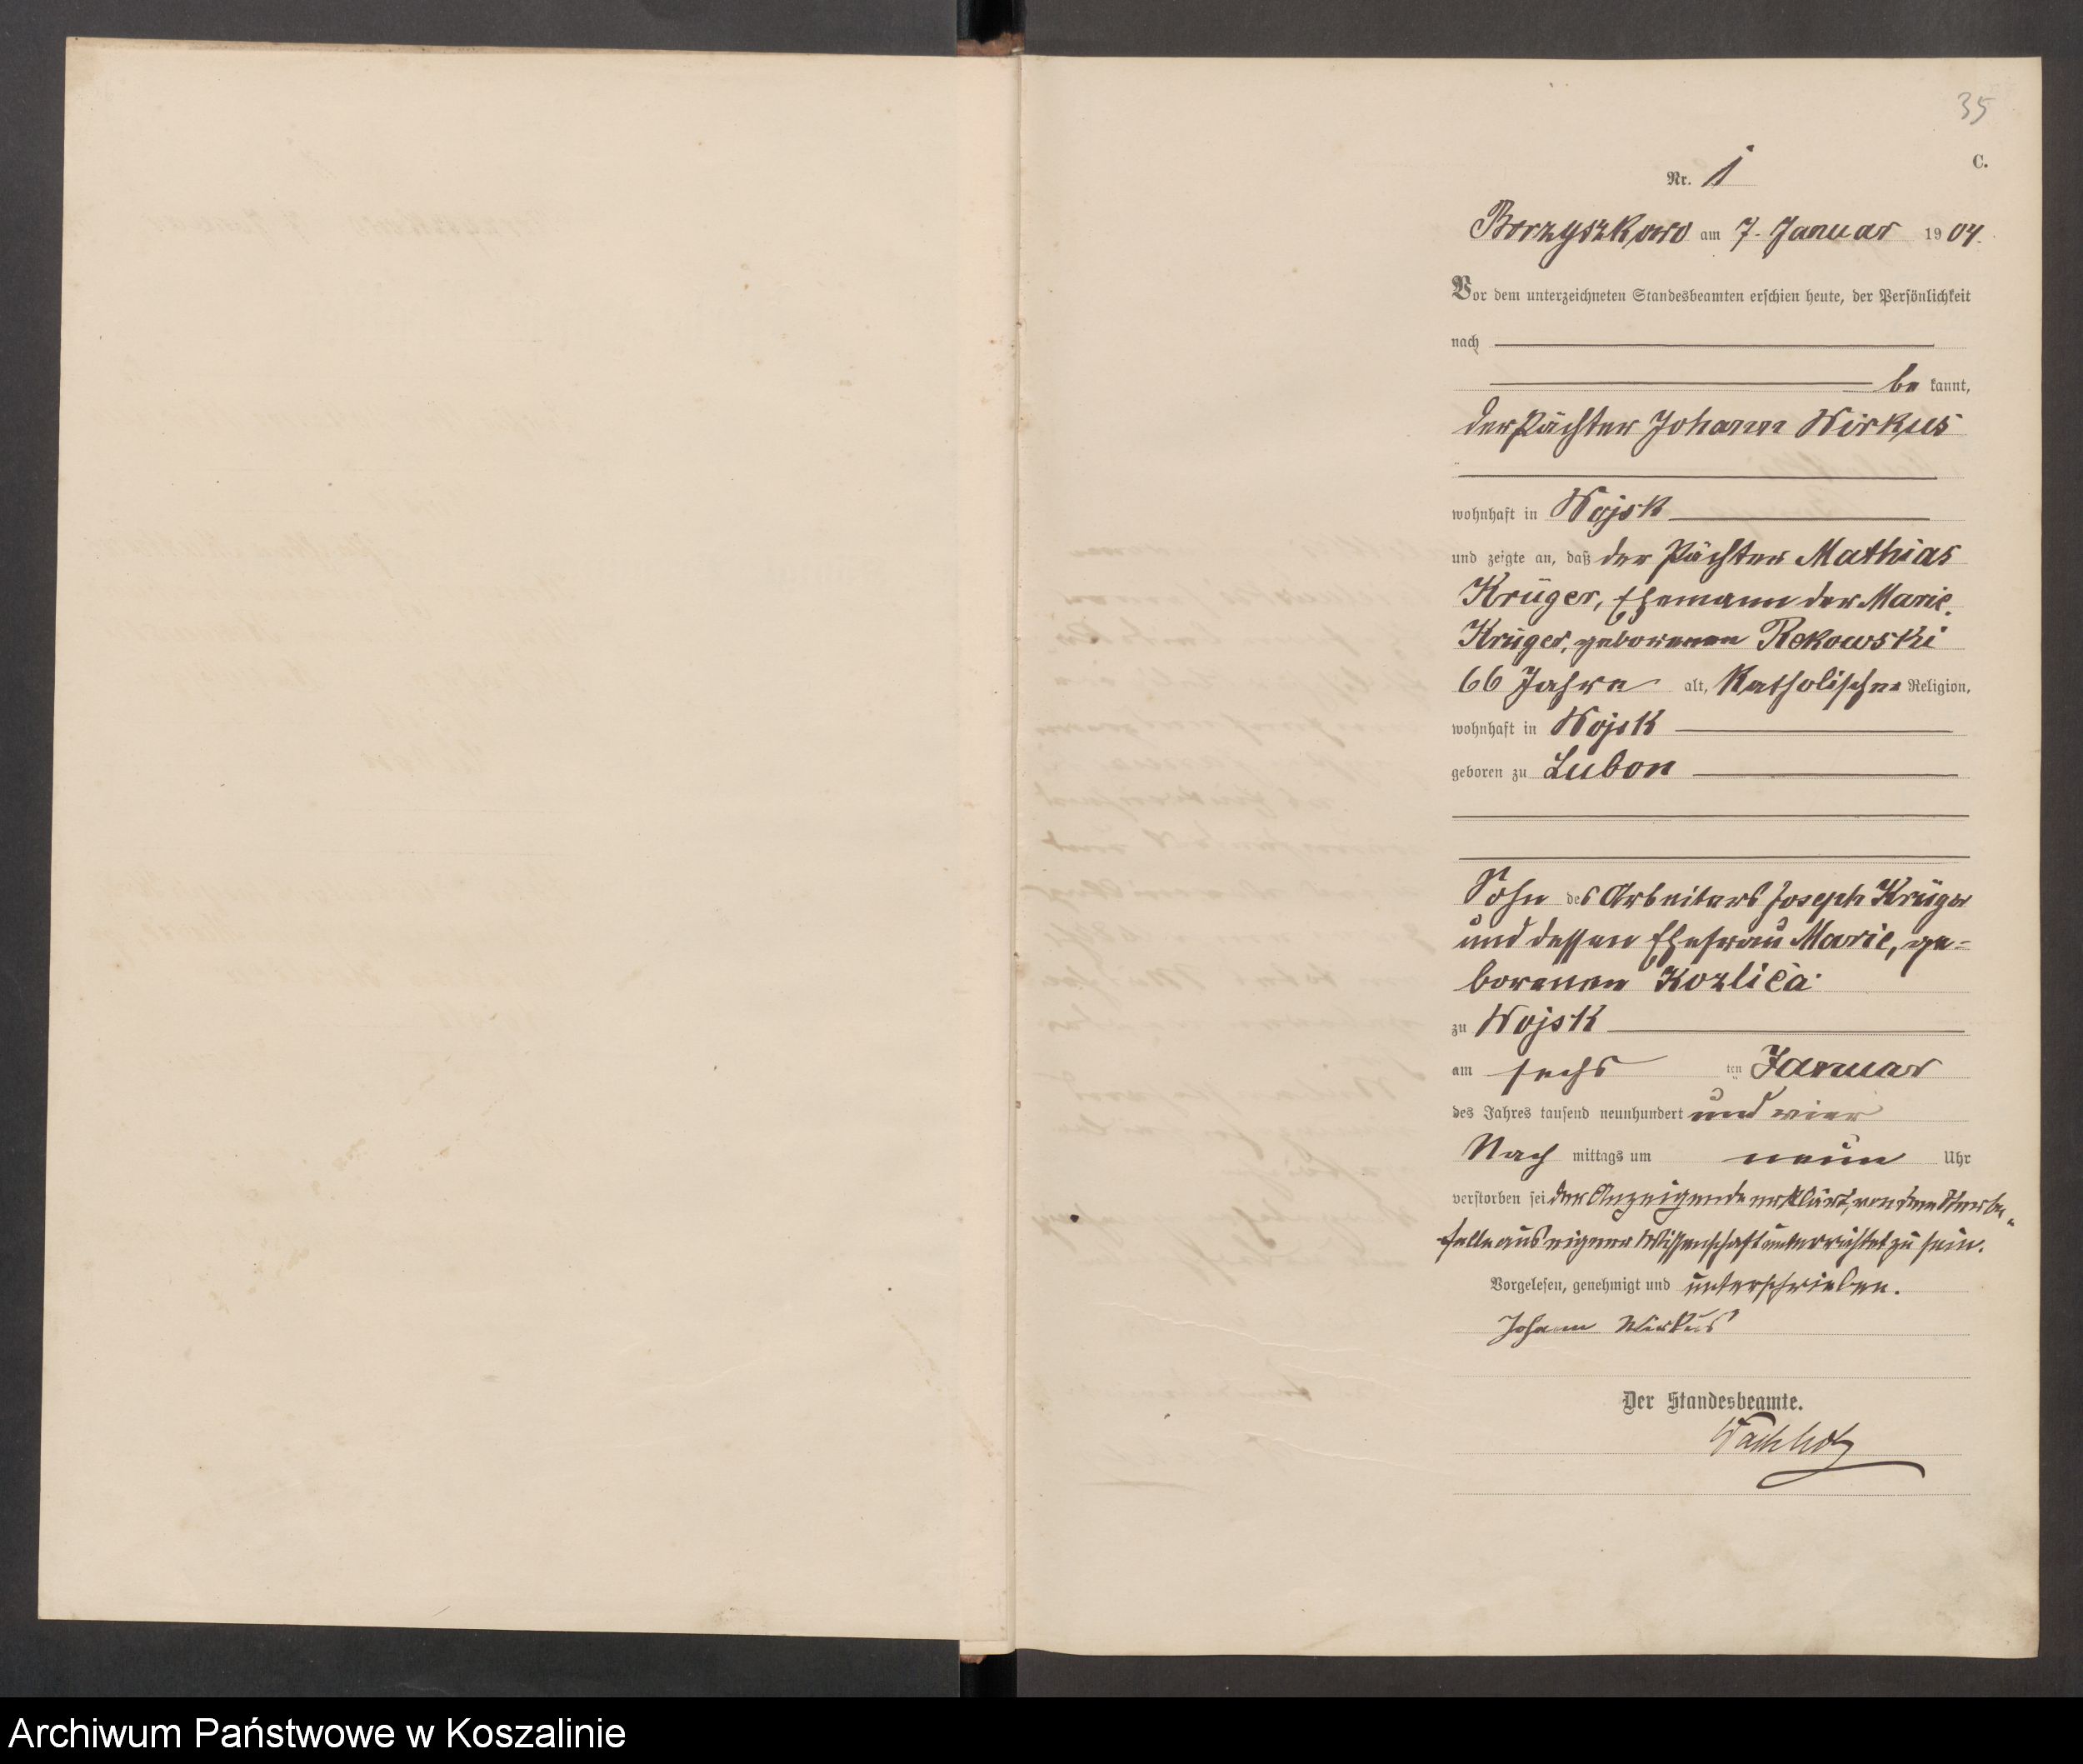 35
C.
Nr. 1
Borzyszkowo am 7. Januar 1904.
Vor dem unterzeichneten Standesbeamten erschien heute, der Persönlichkeit
nach
be kannt,
der Pächter Johann Wirkus
wohnhaft in Wojsk
und zeigte an, daß der Pächter Mathias
Krüger, Ehemann der Marie
Krüger, geborenen Rekowski
66 Jahre alt, Katholischer Religion,
wohnhaft in Wojsk
geboren zu Lubon
Sohn des Arbeiters Joseph Krüger
und dessen Ehefrau Marie, ge-
borenen Kozlica
zu Wojsk
am sechs ten Januar
des Jahres tausend neunhundert und vier
Nach mittags um neun Uhr
verstorben sei der Anzeigende erklärt, von dem Sterbe-
falle aus eigener Wissenschaft unterrichtet zu sein.
Vorgelesen, genehmigt und unterschrieben.
Johann Wirkus
Der Standesbeamte.
Archiwum Państwowe w Koszalinie